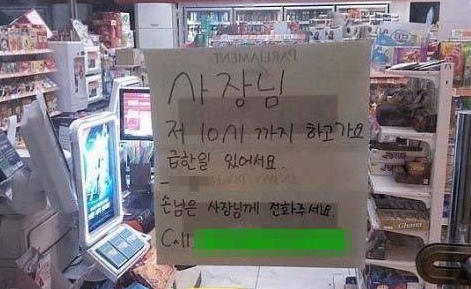 PARLIAMENT
사장님
저 10시 까지 하고가요
급한일 있어서요
-
손님은 사장님께 전화주세요
Call
Ghana